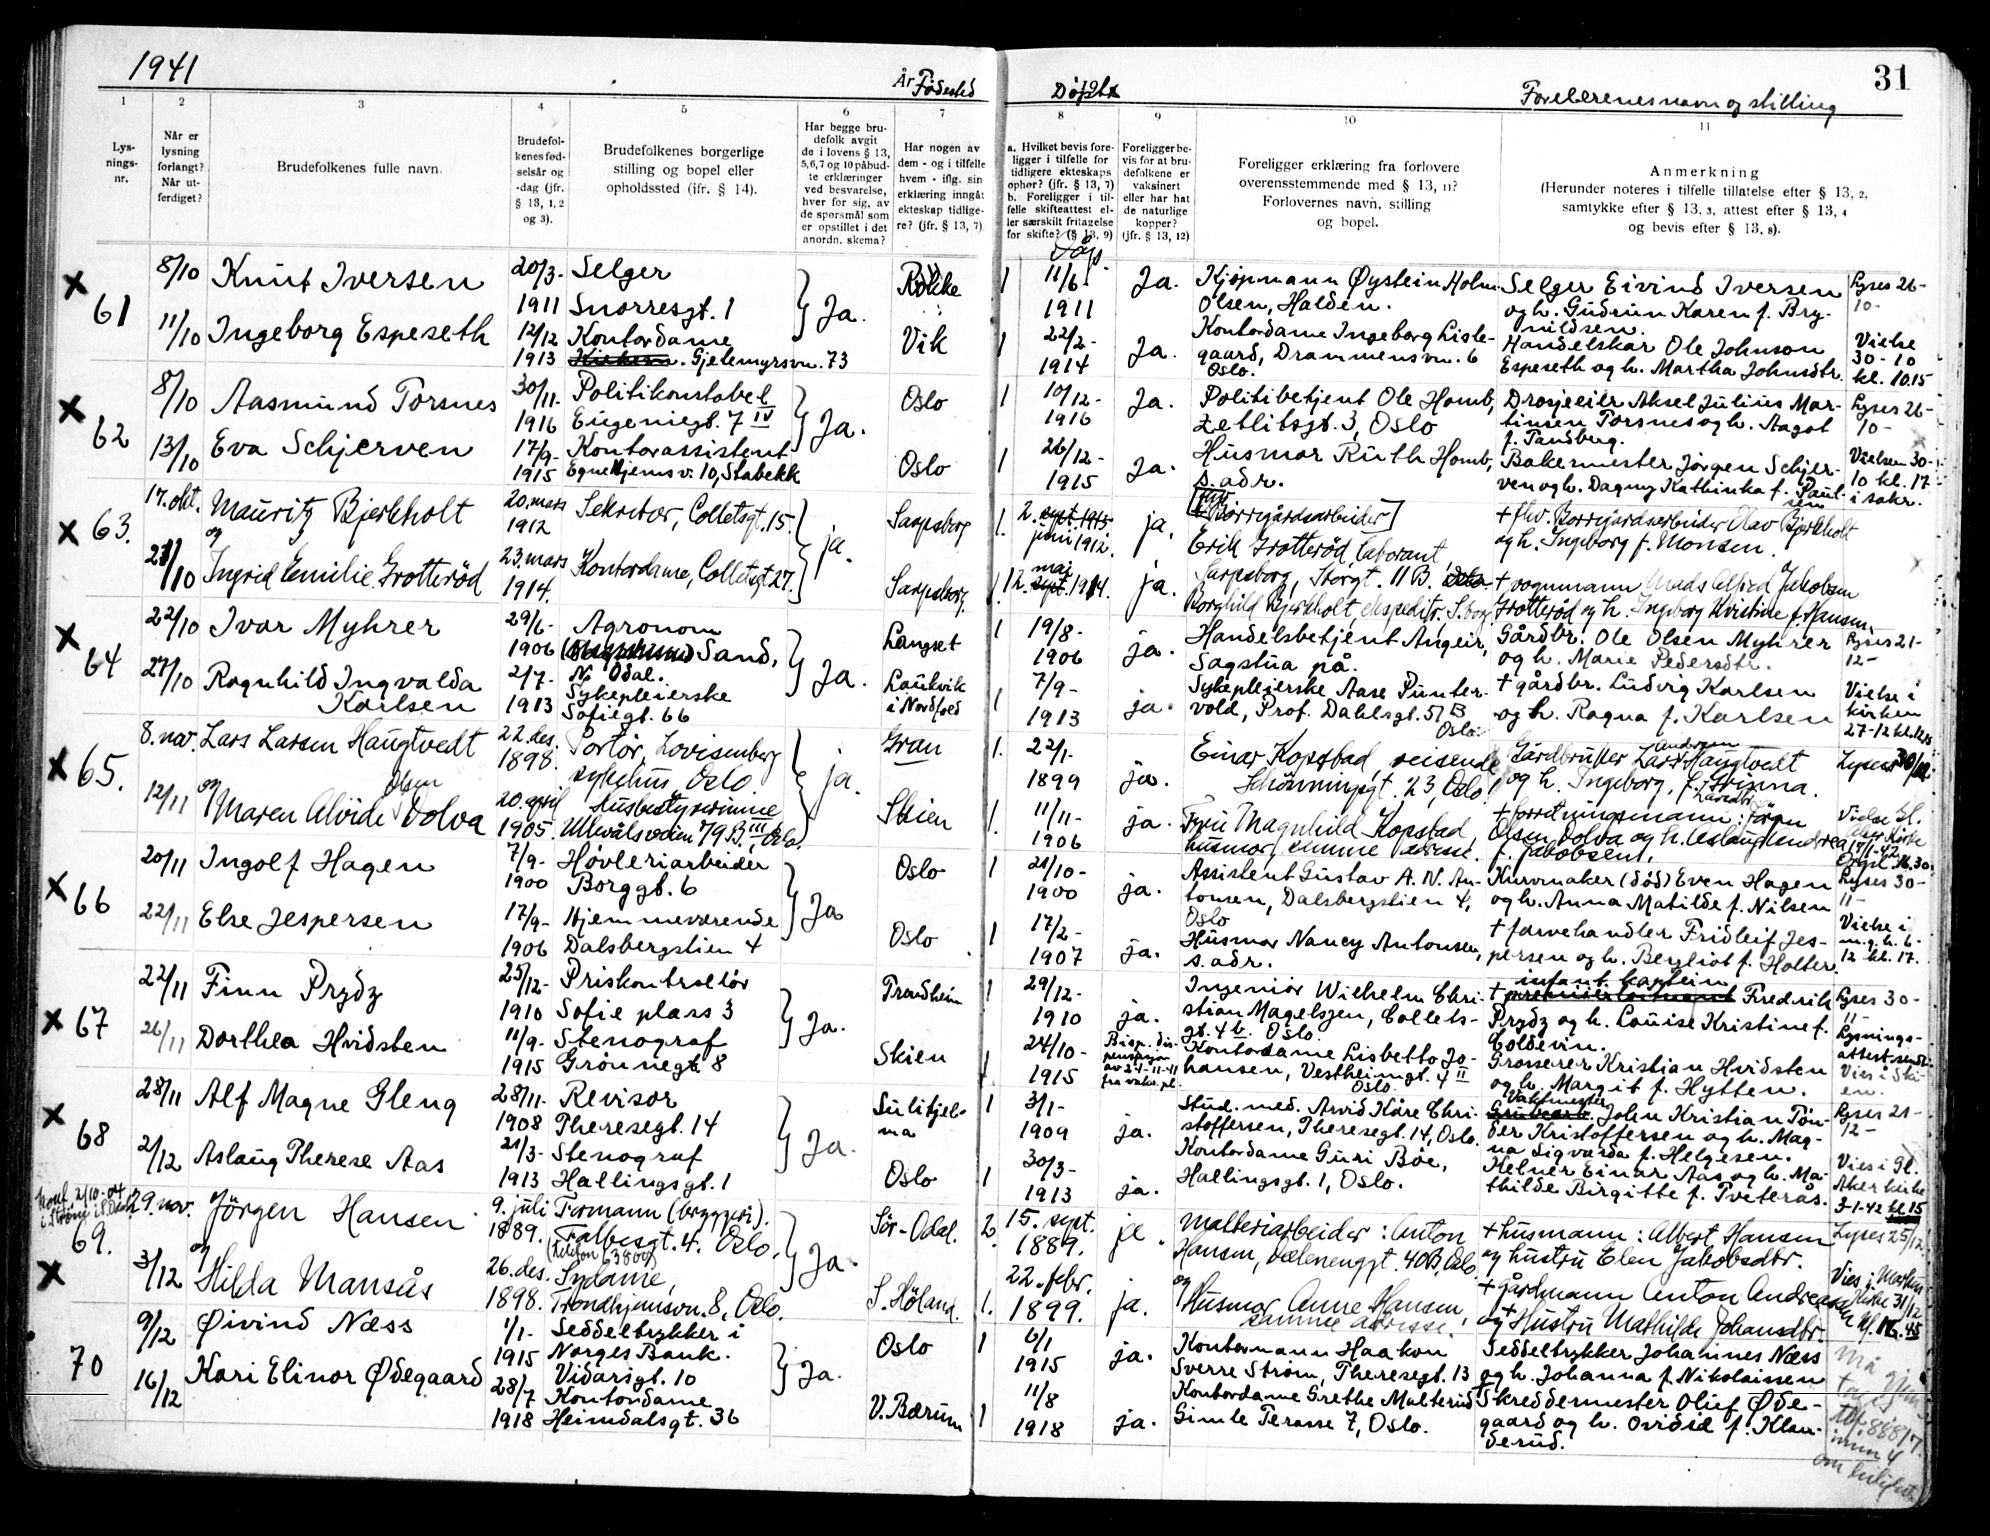 1941
År
Fødested
Døpt
Foreldrenes navn og stilling
31
1
2
3
4
5
6
7
8
9
10
11
Lys-
nings-
nr.
Når er
lysning
forlangt?
Når ut-
ferdiget?
Brudefolkenes fulle navn.
Brudefol-
kenes fød-
selsår og
-dag (jfr.
§ 13, 1, 2
og 3).
Brudefolkenes borgerlige
stilling og bopel eller
opholdssted (jfr. § 14).
Har begge bru-
defolk avgit
de i lovens § 13,
5,6,7 og 10 påbud-
te erklæringer
ved besvarelse,
hver for sig, av
de spørsmål som
er opstillet i det
anordn. skema?
Har nogen av
dem - og i tilfelle
hvem - iflg. sin
erklæring inngått
ekteskap tidlige-
re? (jfr. § 13, 7)
a. Hvilket bevis fore-
ligger i tilfelle for
tidligere ekteskaps
ophør? (jfr. § 13, 7)
b. Foreligger i til-
felle skifteattest el-
ler særskilt fritagelse
for skifte? (§ 13, 9)
Foreligger be-
vis for at bru-
defolkene er
vaksinert
eller har hat
de naturlige
kopper?
(jfr. § 13, 12)
Foreligger erklæring fra forlovere
overensstemmende med § 13, 11?
Forlovernes navn, stilling
og bopel.
Anmerkning
(Herunder noteres i tilfelle tillatelse efter § 13, 2,
samtykke efter § 13, 3, attest efter § 13, 4
og bevis efter § 13, 8).
61
8/10 Knut Iversen 20/3- Selger Rokke 1 11/6 Ja. Kjøpmann Øystein Holm Selger Eivind Iversen Lyses 26-
1911 Snorresgt. 1 Ja. 1911 Olsen, Halden. og h. Gudrun Karen f. Bry- 10-
11/10 Ingeborg Espeseth 12/12 Kontordame Vik 1 22/2- Ja. Kontordame Ingeborg Liste- nildsen.
1913 Gjetemyrsvn. 73 1914 gaard, Drammensvn. 6 Handelskar Ole Johnson Vielse
Oslo. Espeseth og h. Martha Johnsdtr. 30-10
kl. 10.15
62
8/10 Aasmund Torsnes 30/11- Politikonstabel Oslo 1 10/12- Ja. Politibetjent Ole Homb, Drosjeeier Aksel Julius Mar- Lyses 26-
1916 Eugeniegt. 7 IV Ja. 1916 Zetlitsgt. 3, Oslo tinsen Torsnes og h. Aagot 10-
13/10 Eva Schjerven 17/9- Kontorassistent Oslo 1 26/12- Ja. Husmor Ruth Homb, f. Tandberg.
1915 Egnehjemsv. 10, Stabekk 1915 s. adr. Bakermester Jørgen Schjer- Vielsen 30-
ven og h. Dagny Kathinka f. Paul- 10 kl. 17
sen i sakr.
63.
17. okt. Mauritz Bjerkholt 20. mars Sekretær, Colletsgt. 15. Sarpsborg 1. 2. sept. 1913 ja. [fhv. Borregårdsarbeider] + fhv. Borregårdsarbeider Olav Bjerkholt
og 1912 ja. juni 1912. Erik Grotterød, laborant, og h. Ingeborg f. Monsen.
21/10 Ingrid Emilie Grotterød 23. mars Kontordame, Colletsgt. 27. Sarpsborg. 1 12. mai 1914. ja. Sarpsborg, Storgt. 11 B. + vognmann Mads Alfred Jakobsen
1914. Borghild Bjerkholt, ekspeditr. S.borg Grotterød og h. Ingeborg Kristine f. Hansen.
64
22/10 Ivar Myhrer 29/6- Agronom Langset 1 19/8- ja. Handelsbetjent Angeir, Gårdbr. Ole Olsen Myhrer Lyses 21-
1906 Sand, Ja. 1906 Sagstua på. og h. Marie Pedersdtr. 12-
27/10 Ragnhild Ingvalda 2/7- N. Odal. Laukvik 1 7/9- ja. Sykepleierske Aase Punter- + gårdbr. Ludvig Karlsen Vielse i
Karlsen 1913 Sykepleierske i Nordfjord 1913 vold, Prof. Dahlsgt. 51 B og h. Ragna f. Karlsen kirken
Sofiegt. 66 Oslo. 27-12 kl.
65.
8. nov. Lars Larsen Haugtvedt 22. des. Portør, Lovisenberg Gran 1. 22/1- ja. Einar Kopstad, reisende, Gårdbruker Lars Andersen Haugtvedt Lyses 30/11.
og 1898. sykehus Oslo ja. 1899 Schønningsgt. 23, Oslo. og h. Ingeborg, f.
12/11 Maren Alvide Olsen Dolva 20. april Husbestyrerinne Skien 1. 11/11- ja. Fru Magnhild Kopstad, + forretningsmann: Jørgen Vielse Gl.
1905. Ullevålsveien 79 B. III, Oslo. 1906 husmor, samme adresse. Olsen Dolva og h. Aslaug Andrea Aker Kirke
f. Jakobsen. 17/1-42
66
20/11 Ingolf Hagen 7/9- Høvleriarbeider Oslo 1 21/10- ja. Assistent Gustav A. N. An- Kurvmaker (død) Even Hagen Lyses 30-
1900 Borggt. 6 Ja 1900 tonsen, Dalsbergstien 4, og h. Anna Matilde f. Nilsen 11-
22/11 Else Jespersen 17/9- Hjemmeværende Oslo 1 17/2- ja. Oslo + farvehandler Fridleif Jes- Vielse i
1906 Dalsbergstien 4 1907 Husmor Nancy Antonsen, persen og h. Bergliot f. Holter. m.g.h. 6-
s. adr. 12 kl. 17.
67
22/11 Finn Prydz 25/12- Priskontrollør Trondheim 1 29/12- ja. Ingeniør Wilhelm Chri- + infant. kaptein Fredrik Lyses 30-
1910 Sofie plass 3 Ja. 1910 stian Magelssen, Collets- Prydz og h. Louise Kristine f. 11-
26/11 Dorthea Hvidsten 11/9- Stenograf Skien 1 24/10- Bisp. dis- gt. 4 b. Oslo. Coldevin. Lysnings-
1915 Grønnegt. 8 1915 pensasjon av 24-11-41 fra vaks.pl. Kontordame Lisbetto Jo- Grosserer Kristian Hvidsten attest sendt.
hansen, Vestheimgt. 4 II og h. Margit f. Hytten. Vies i Ski-
Oslo. en.
68
28/11 Alf Magne Gleng 28/11- Revisor Sulitjel- 1 3/1- ja. Stud. med. Arvid Kåre Chri- Vaktmester John Kristian Tøn- Lyses 21-
1908 Theresegt. 14 ma Ja. 1909 stoffersen, Theresegt. 14, Oslo. der Kristoffersen og h. Mag- 12-
2/12 Aslaug Therese Aas 21/3- Stenograf Oslo 1 30/3- ja. Kontordame Guri Bøe, na Sigvarda f. Helgesen.
1913 Hallingsgt. 1 1913 Hallingsgt. 1, Oslo. Kelner Einar Aas og h. Ma- Vies i Gl.
thilde Birgitte f. Tveterås. Aker kirke
3-1-42 kl. 15
69.
Konf. 2/10-04
i Strøm i S. Odal
29. nov. Jörgen Hansen 9. juli Formann (bryggeri). Sör-Odal. 2. 15. sept. ja. Malteriarbeider: Anton + husmann: Albert Hansen Lyses 25/12
og 1889. Falbesgt. 4. Oslo. Ja. 1889. Hansen, Vålerenggt. 40 B, Oslo. og hustru Elen Jakobsdtr.
(Telefon 63860)
3/12 Hilda Mansås 26. des. Sydame, S. Höland. 1. 22. febr. ja. og Husmor Anne Hansen, + Gårdmann Anton Andreassen Vies i Markus
1898. Trondhjemsvn. 8, Oslo. 1899. samme adresse. og + Hustru Mathilde Johansdtr. Kirke 31/12
70
9/12 Øivind Næss 1/1- Seddeltrykker i Oslo 1 6/1 ja. Kontormann Haakon Seddeltrykker Johannes Næss Må
1915 Norges Bank. Ja. 1915 Sverre Strøm, Theresegt. 13 og h. Johanna f. Nikolaissen
16/12 Kari Elinor Ødegaard Vidarsgt. 10
28/7 Kontordame V. Bærum 1 11/8 ja. Kontordame Grethe Malterud Skreddermester Oluf Øde- tlf. 88817.
1918 Heimdalsgt. 36 1918 Gimle Terasse 7, Oslo. gaard og h. Ovidie f. Klan-
derud.